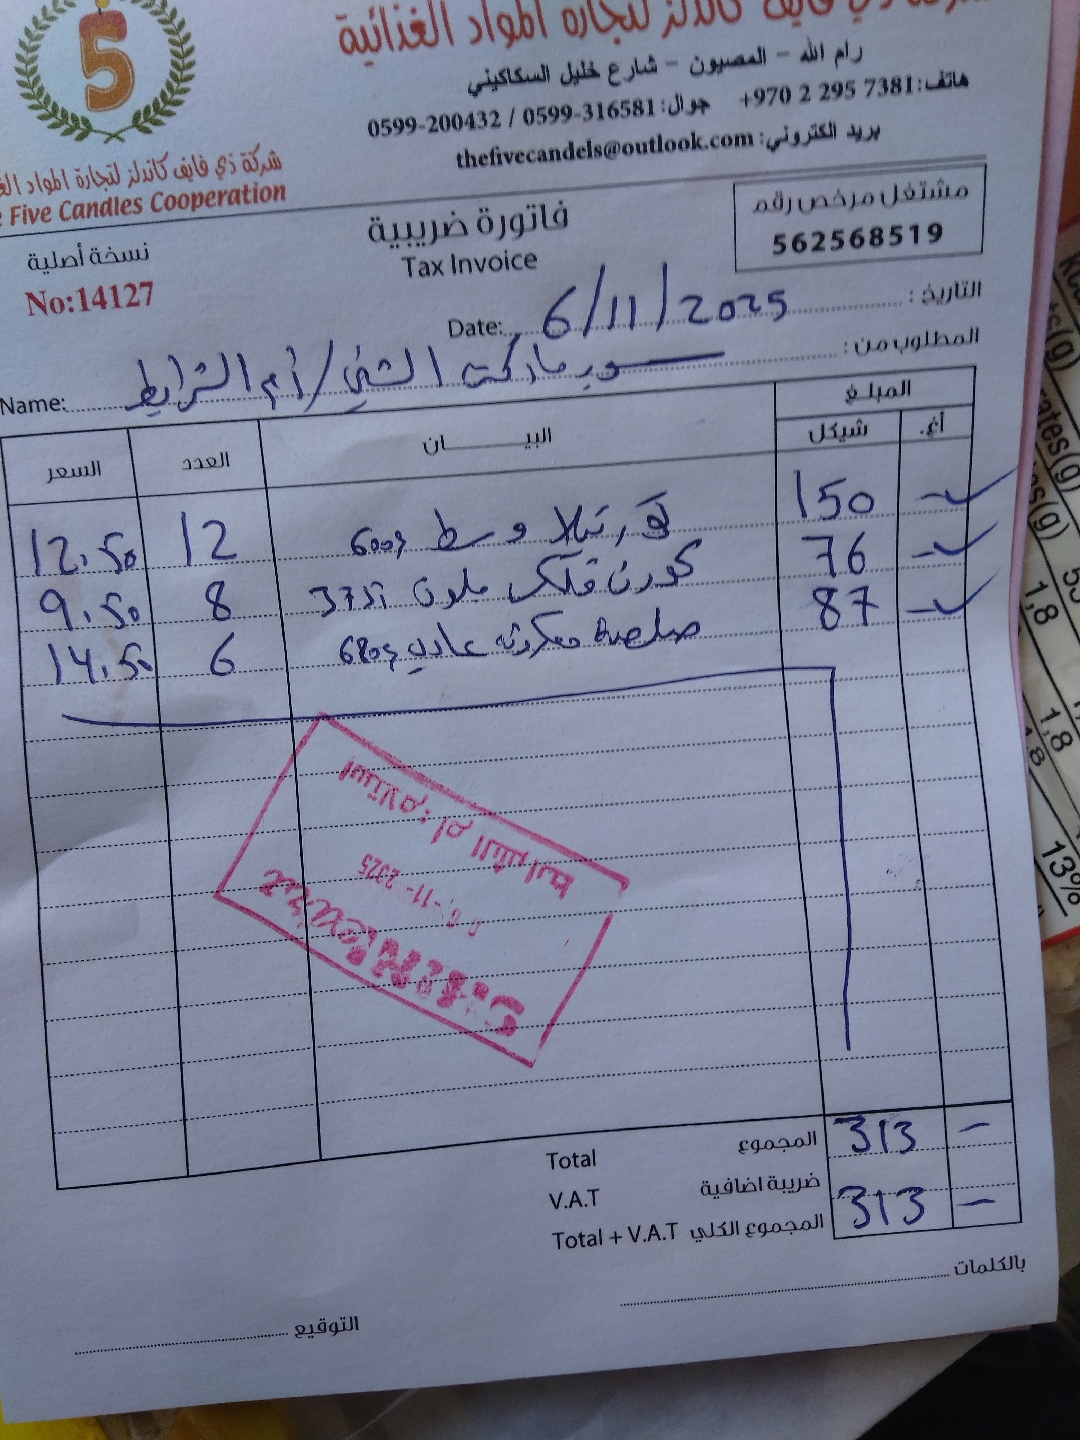 5
شركة ذي فايف كاندلز لتجارة المواد الغذائية
رام الله - المصيون - شارع خليل السكاكيني
هاتف: +970 2 295 7381 جوال: 0599-316581 / 0599-200432
بريد الكتروني: thefivecandels@outlook.com
شركة ذي فايف كاندلز لتجارة المواد
Five Candles Cooperation
مشتغل مرخص رقم
562568519
فاتورة ضريبية
Tax Invoice
نسخة أصلية
No:14127
التاريخ: 6/11/2025 Date:
المطلوب من: سوبر ماركت الشني / أم الشرايط Name:
المبلغ
أغ. شيكل البيــــان العدد السعر
- 150 وسط 600g 12 12.50
- 76 كورن فلكس ملون 375g 8 9.50
- 87 صلصة معكرونة عادي 680g 6 14.50
استلام: ام الشرايط
-11- 2025
- 313 المجموع Total
ضريبة اضافية V.A.T
- 313 المجموع الكلي Total + V.A.T
بالكلمات
التوقيع
1,8
1,8
1,8
13%